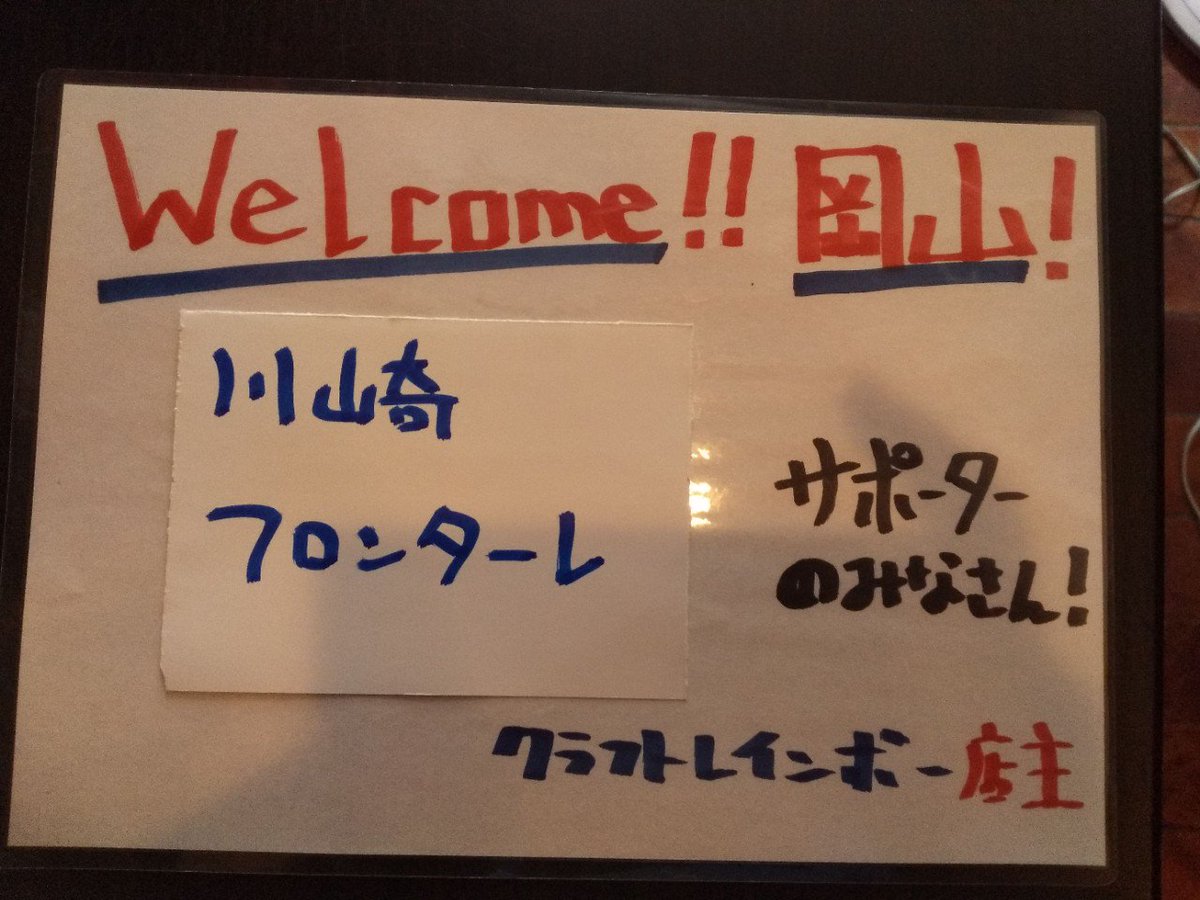 Welcome!! 岡山!
川崎
フロンターレ
サポーター
のみなさん!
クラフトレインボー店主